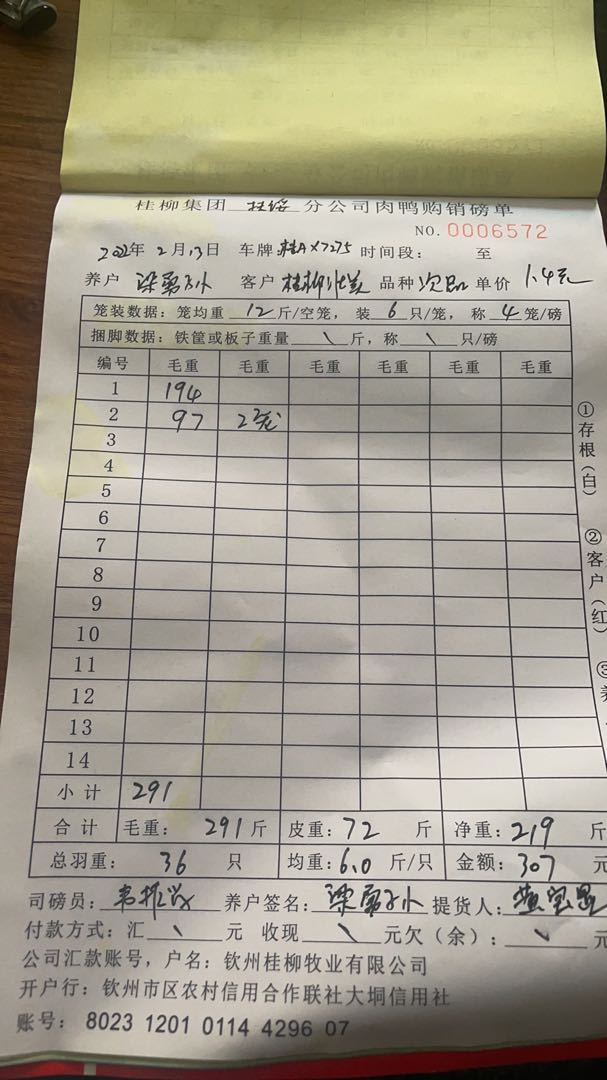 桂柳集团 分公司肉鸭购销磅单
NO. 0006572
2022年 2月13日 车牌:桂AX7275 时间段: 至
养户 客户 桂柳 品种 次品 单价 1.4元
笼装数据:笼均重 12 斤/空笼,装 6 只/笼,称 4 笼/磅
捆脚数据:铁筐或板子重量 \ 斤,称 \ 只/磅
编号 毛重 毛重 毛重 毛重 毛重 毛重
1 194
2 97 2笼
3
4
5
6
7
8
9
10
11
12
13
14
小计 291
合计 毛重: 291斤 皮重:72 斤 净重:219 斤
总羽重: 36 只 均重:6.0 斤/只 金额:307 元
司磅员: 养户签名: 提货人:
付款方式:汇 \ 元 收现 \ 元欠(余): \ 元
公司汇款账号,户名:钦州桂柳牧业有限公司
开户行:钦州市区农村信用合作联社大垌信用社
账号: 8023 1201 0114 4296 07
①存根(白)
②客户(红)
③养